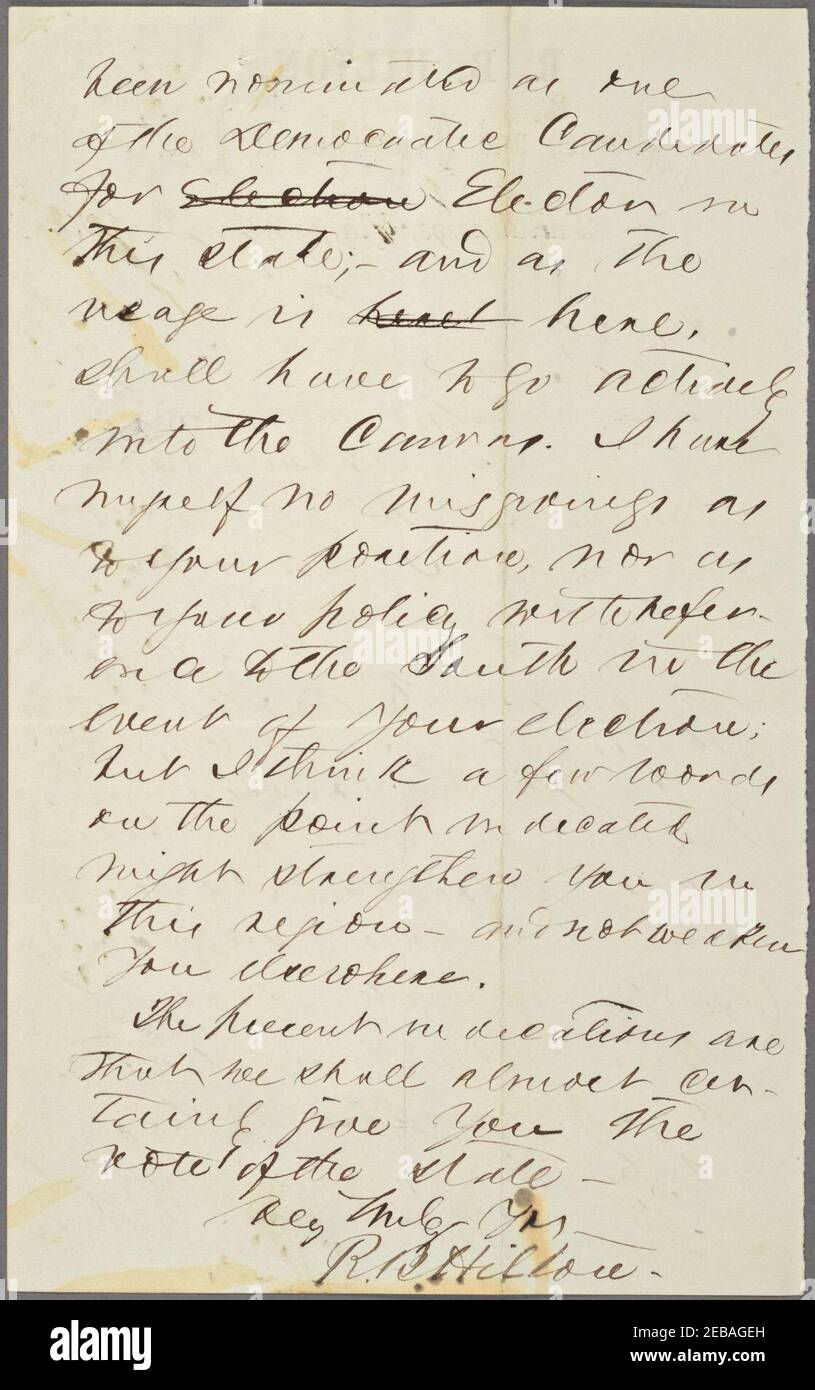 been nominated as one
of the Democratic Candidates
for Election Elector in
this state; – and as the
usage is here,
shall have to go actively
into the Canvas. I have
myself no misgivings as
to your position, nor as
to your policy with refer-
ence to the South in the
event of your election;
but I think a few words
on the point indicated
might strengthen you in
this region – and not weaken
you elsewhere.
The present indications are
that we shall almost cer-
tainly give you the
vote of the state –
Very Truly Yrs
R. B. Hilton –
alamy
alamy
Image ID: 2EBAGEH
www.alamy.com